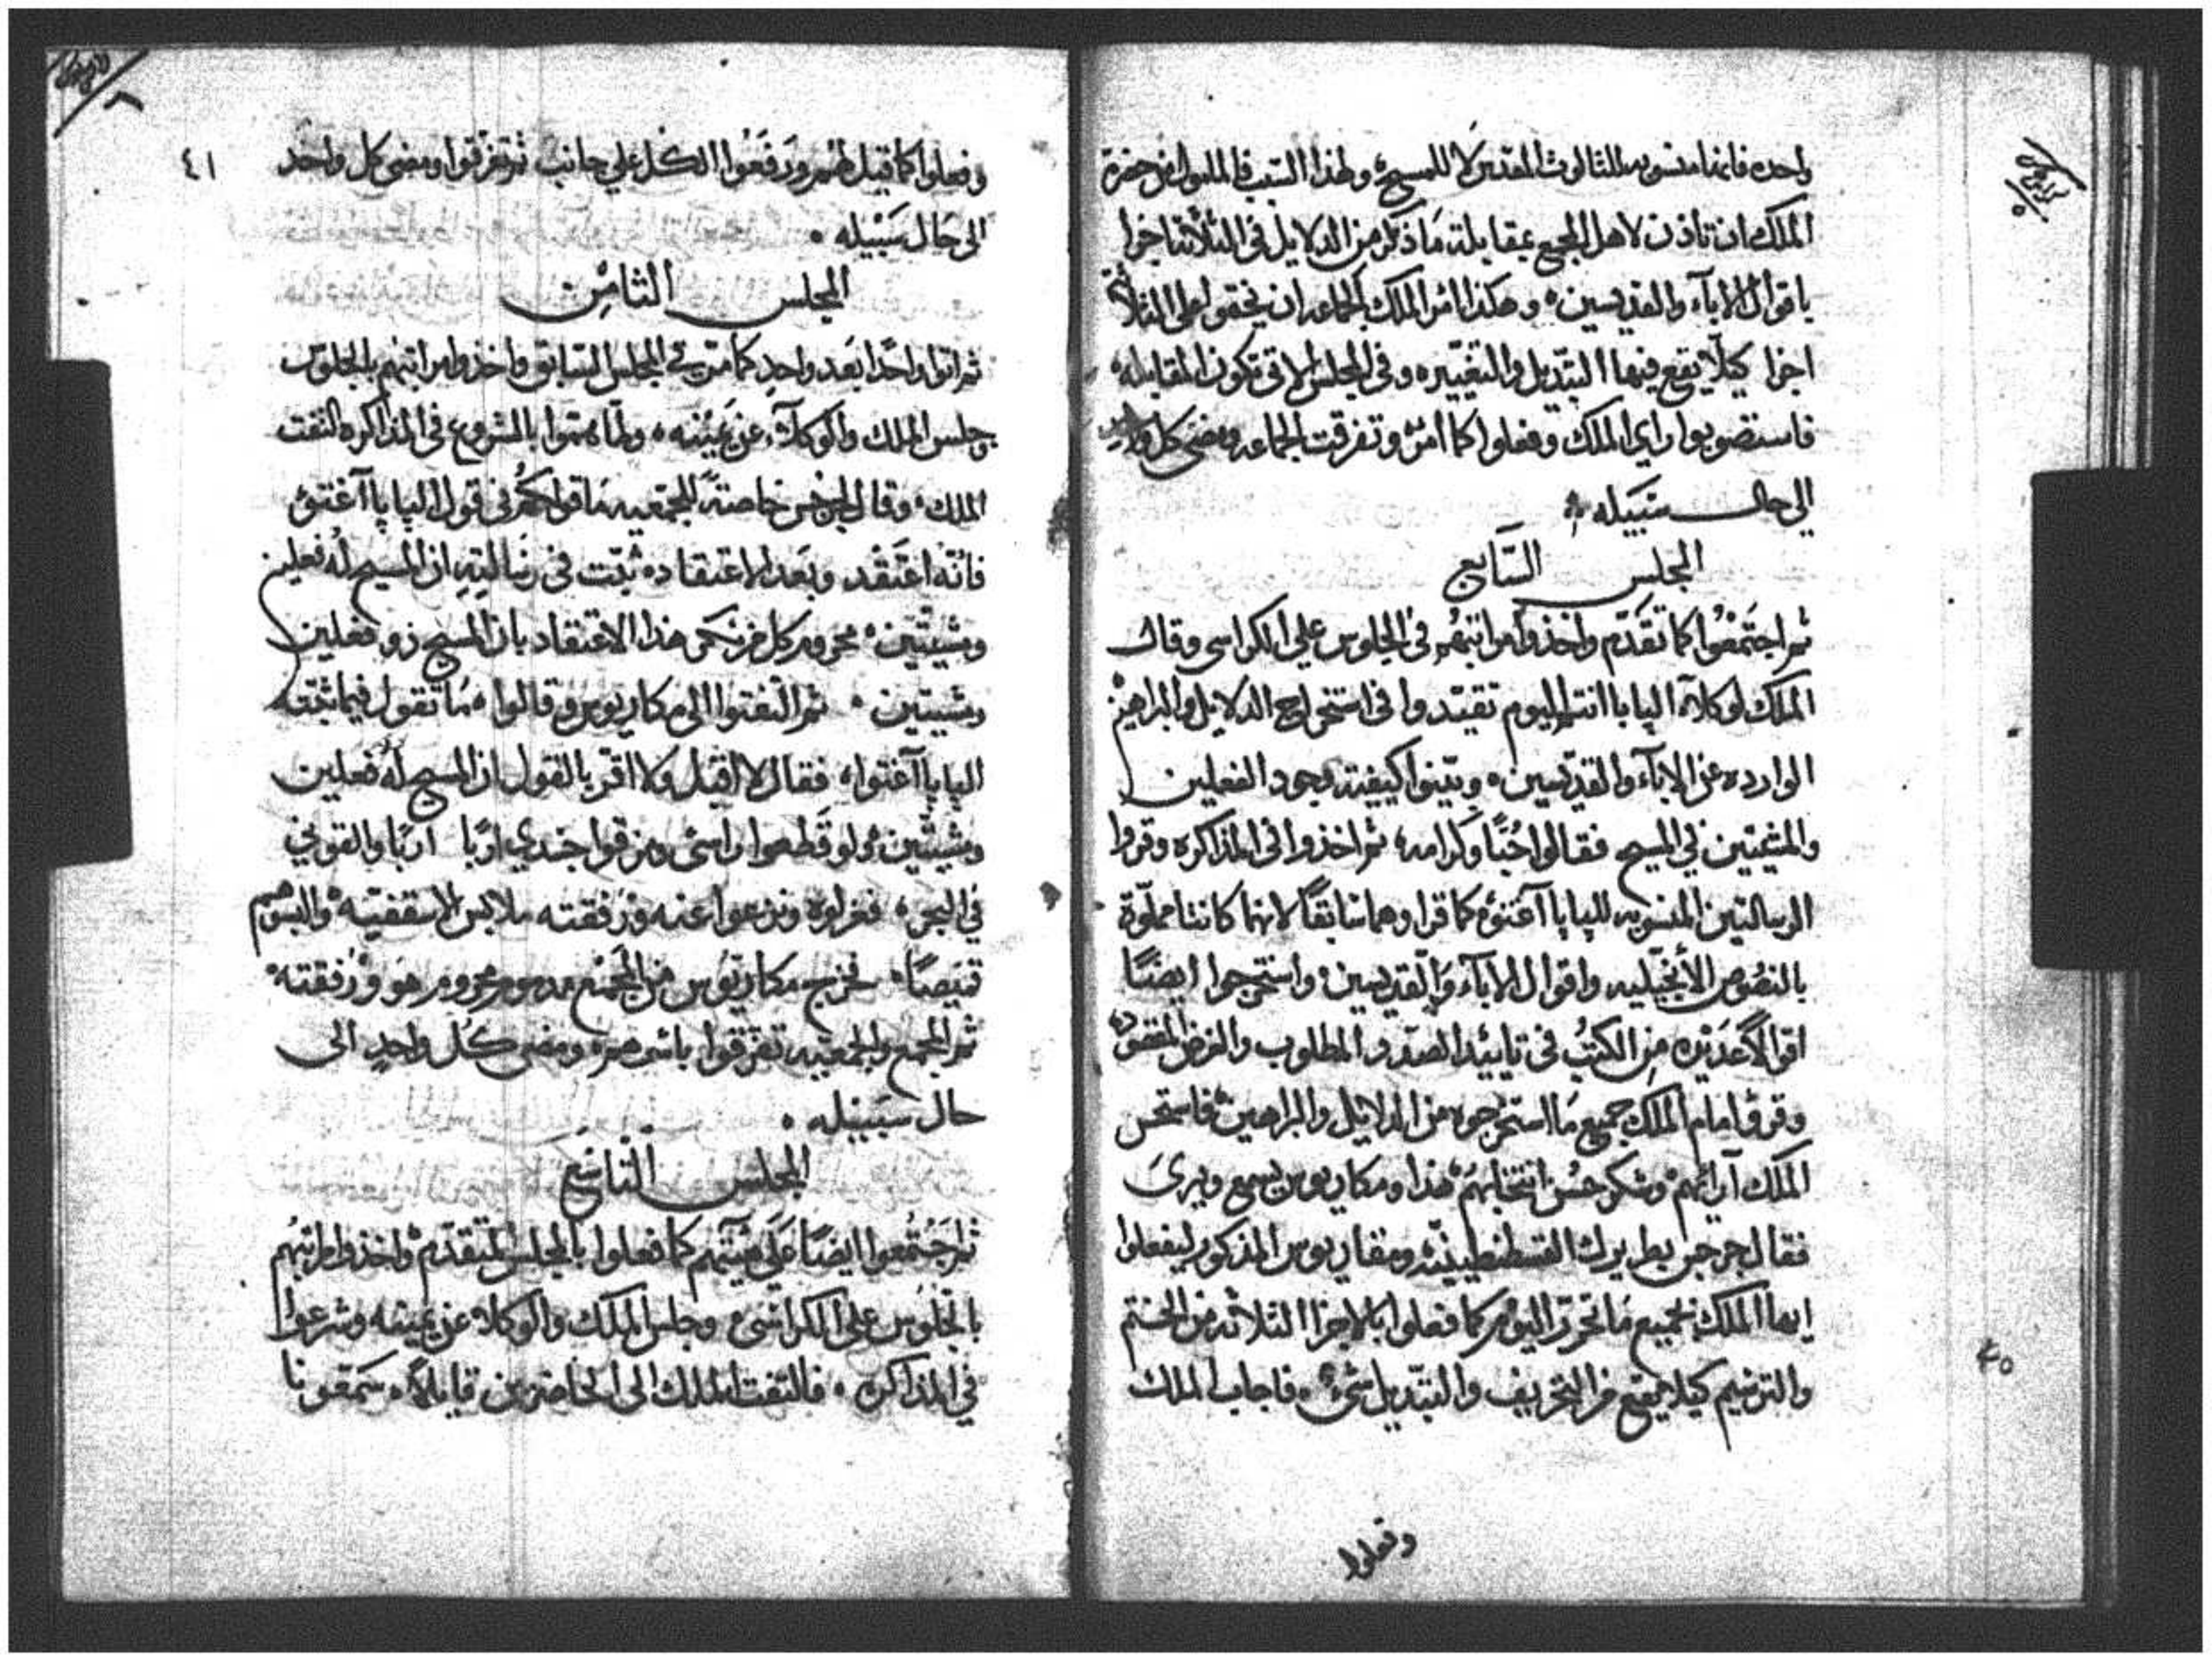 واحده فانها منسوبه للثالوث المقدس لا للمسيح، ولهذا السبب فالمطلوب من حضرة
الملك ان تاذن لاهل المجمع بمقابلة ما ذكر من الدلايل في الثلاثة اجزا
باقوال الابآء والقديسين، وهكذا امر الملك الجماعه ان يختموا علي الثلاثة
اجزا كيلا يقع فيها التبديل والتغيير، وفي المجلس الاتي تكون المقابله،
فاستصوبوا راي الملك وفعلوا كما امر وتفرقت الجماعه ومضي كل واحد
الي حال سبيله
المجلس السابع
ثم اجتمعوا كما تقدم واخذوا مراتبهم في الجلوس علي الكراسي وقال
الملك لوكلآء الپاپا انتم اليوم تقيدوا في استخراج الدلايل والبراهين
الوارده عن الابآء والقديسين، وبينوا كيفية وجود الفعلين
والمشيتين في المسيح فقالوا حبًا وكرامه، ثم اخذوا في المذاكره وقروا
الرسالتين المنسوبه للپاپا آغتو كما قراوهما سابقًا لانهما كانتا مملوة
بالنصوص الانجيليه واقوال الابآء والقديسين، واستخرجوا ايضًا
اقوالًا عديده من الكتب في تاييد الصدد المطلوب والغرض المقصود
وقرؤا امام الملك جميع ما استخرجوه من الدلايل والبراهين فاستحسن
الملك آرائهم وشكر حسن انتخابهم هذا ومكاريوس يسمع ويرى
فقال جرجس بطريرك القسطنطينيه ومقاريوس المذكور ليفعلوا
ايها الملك بجميع ما تحرر اليوم كما فعلوا بالاجزا الثلاثه من الختم
والترسيم كيلا يقع من التحريف والتبديل شيء، فاجاب الملك
وفعلوا
٤٠
٤١
وفعلوا كما قيل لهم ورفعوا الكل علي جانب ثم تفرقوا ومضي كل واحد
الى حال سبيله
المجلس الثامن
ثم اتوا واحدًا بعد واحدٍ كما مر في المجلس السابق واخذوا مراتبهم بالجلوس
وجلس الملك والوكلآء عن يمينه، ولما هموا بالشروع في المذاكره التفت
الملك، وقال لجرجس خاصةً للجمعيه ما قولكم في قول الپاپا آغتو
فانه اعتقد وبعد الاعتقاد ثبت في رسالتهِ ان المسيح له فعلين
ومشيتين، محروم كل من نكر هذا الاعتقاد بان المسيح ذو فعلين
ومشيتين، ثم التفتوا الى مكاريوس وقالوا، ما تقول فيما ثبته
الپاپا آغتوا، فقال لا اقبل ولا اقر بالقول ان المسيح له فعلين
ومشيتين ولو قطعوا راسي ومزقوا جسدي اربًا اربًا والقوني
في البحر، فعزلوه ونزعوا عنه ورفقته ملابس الاسقفيه والبسوهم
قميصًا، فخرج مكاريوس من المجمع محروم هو ورفقته
ثم المجمع والجمعيه تفرقوا باسرهم، ومضى كل واحدٍ الى
حال سبيله
المجلس التاسع
ثم اجتمعوا ايضًا علي هيئتهم كما فعلوا بالمجلس المتقدم واخذوا مراتبهم
بالجلوس علي الكراسي وجلس الملك والوكلاء عن يمينه وشرعوا
في المذاكره، فالتفت الملك الى الحاضرين قايلًا، سمعونا